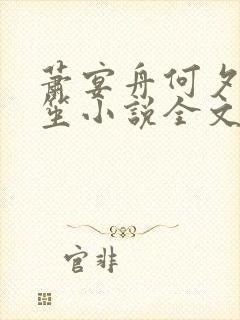 萧宴舟何夕
笙小説全文
官非